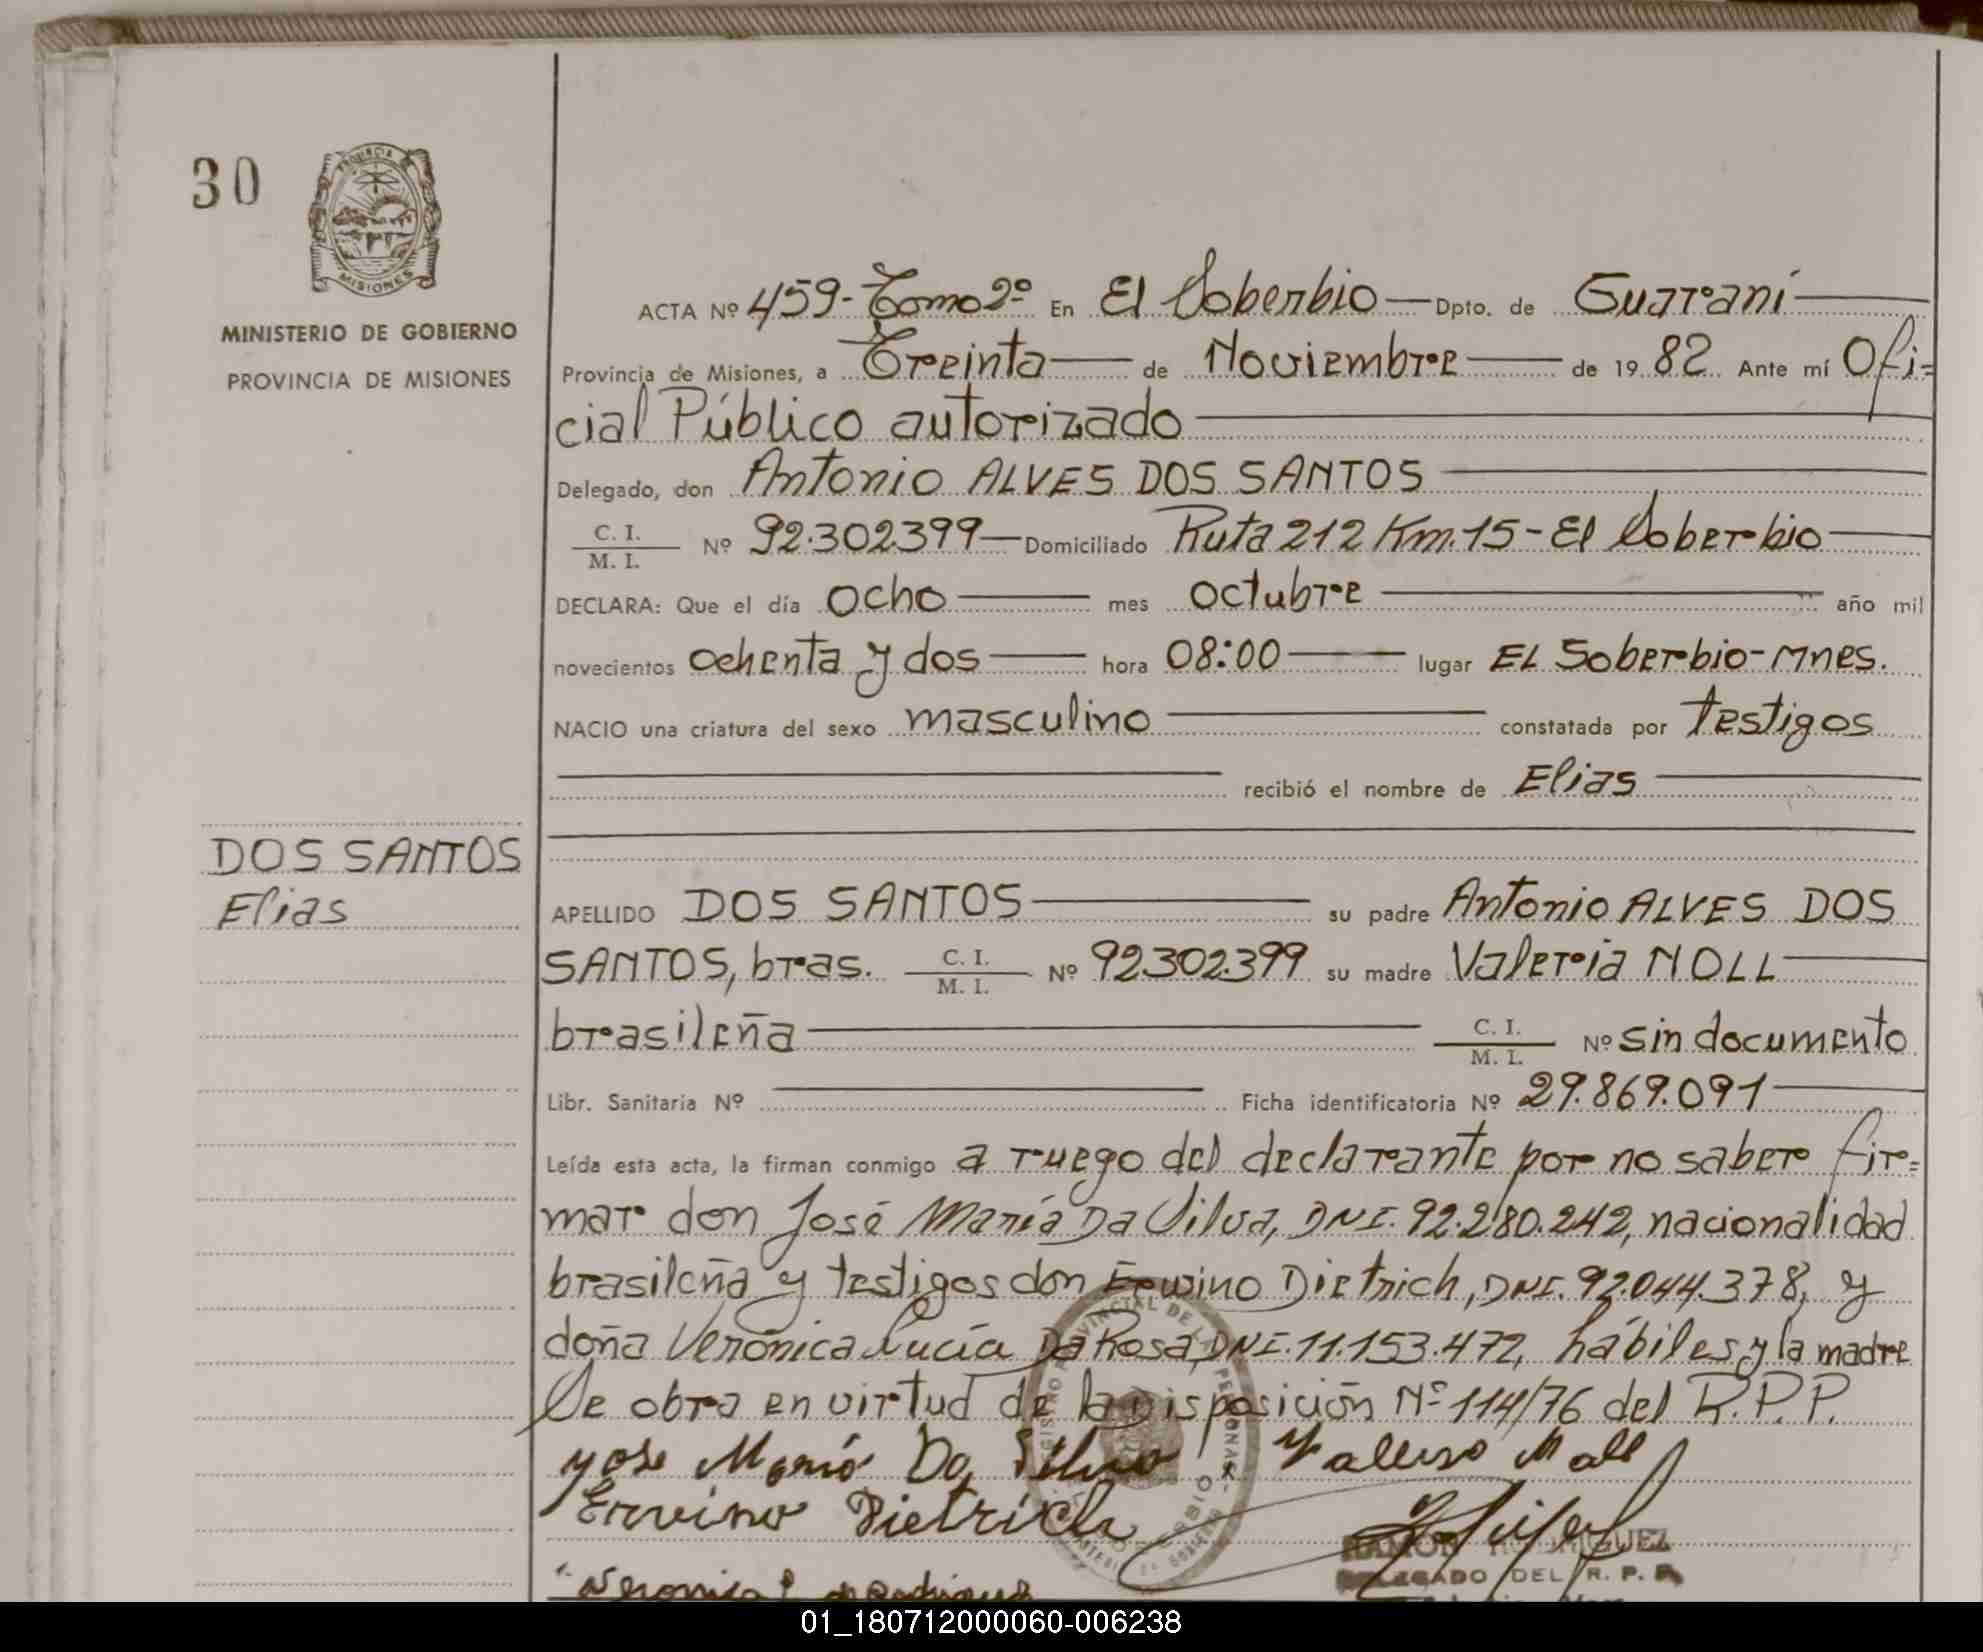 30
PROVINCIA DE
MISIONES
MINISTERIO DE GOBIERNO
PROVINCIA DE MISIONES
ACTA Nº 459-Tomo 2º En El Soberbio Dpto. de Guaraní
Provincia de Misiones, a Treinta de Noviembre de 19 82 Ante mí Ofi=
cial Público autorizado
Delegado, don Antonio ALVES DOS SANTOS
C. I.
M. I. Nº 92.302.399 Domiciliado Ruta 212 Km. 15 - El Soberbio
DECLARA: Que el día ocho mes octubre año mil
novecientos ochenta y dos hora 08:00 lugar EL Soberbio-Mnes.
NACIO una criatura del sexo masculino constatada por testigos
recibió el nombre de Elias
DOS SANTOS
Elias
APELLIDO DOS SANTOS su padre Antonio ALVES DOS
SANTOS, bras. C. I. M. I. Nº 92.302.399 su madre Valeria NOLL
brasileña C. I. M. I. Nº sin documento
Libr. Sanitaria Nº Ficha identificatoria Nº 29.869.091
Leída esta acta, la firman conmigo a ruego del declarante por no saber fir=
mar don José María Da Silva, DNI. 92.280.242, nacionalidad
brasileña y testigos don Erwino Dietrich, DNI. 92.044.378, y
doña Verónica Lucía Da Rosa, DNI. 11.153.472, hábiles y la madre
Se obra en virtud de la Disposición Nº 114/76 del R.P.P.
Da Silva
Ervino Dietrich
RAMON RODRIGUEZ
DELEGADO DEL R. P. P.
01_180712000060-006238